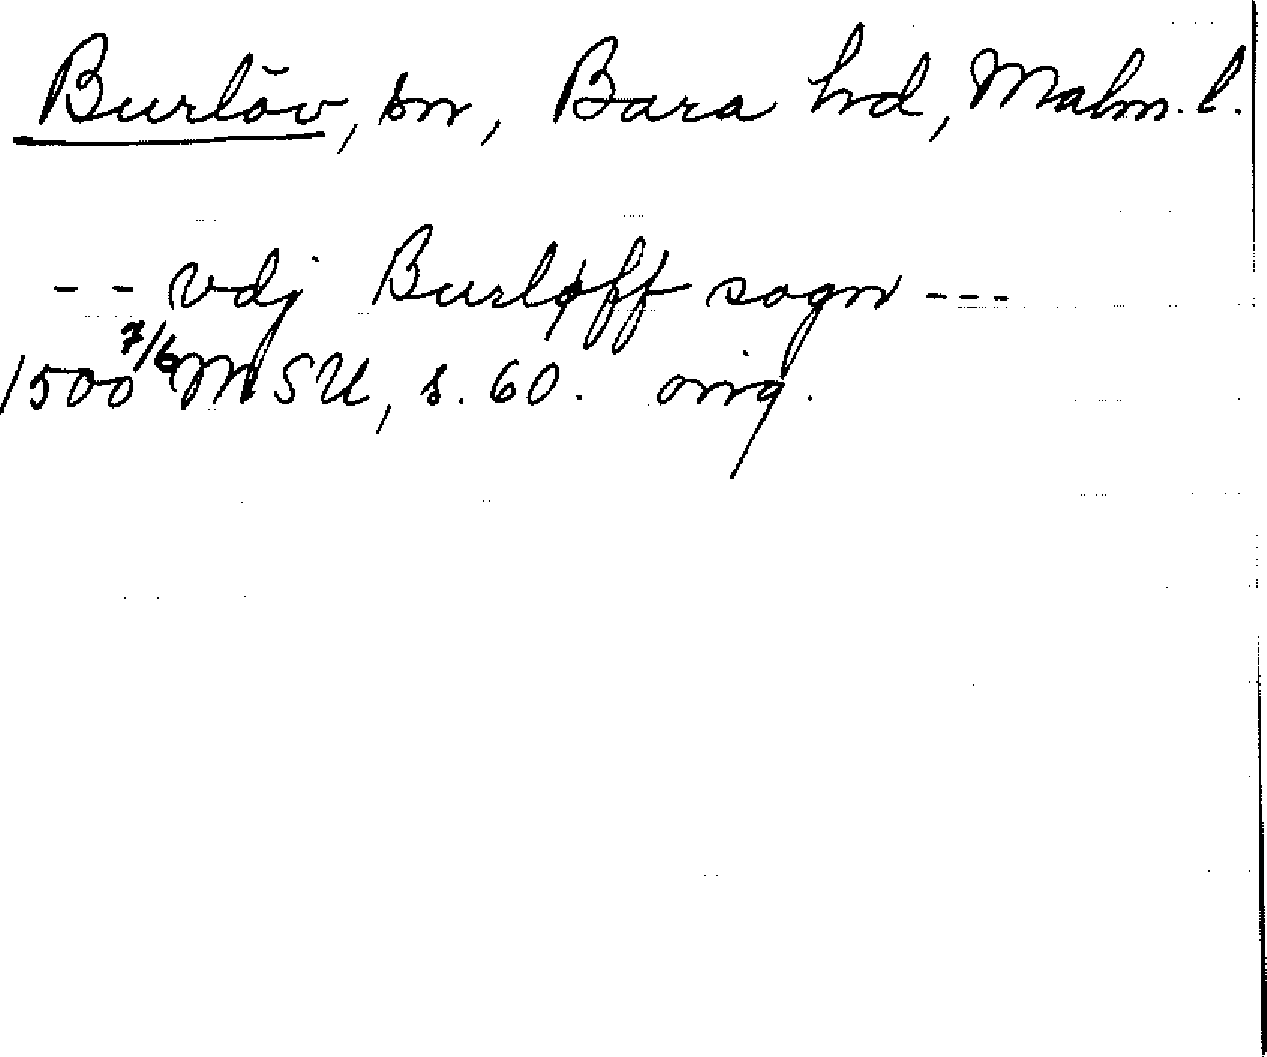 Burlöv, sn, Bara hd, Malm. l.
-- vdj Burløff sogn ---
1500 7/6 MSU, s. 60. orig.